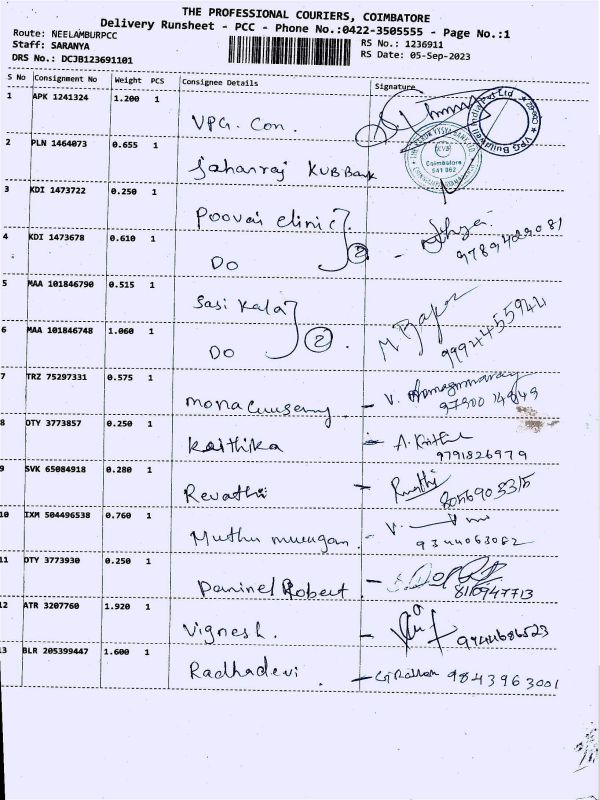 THE PROFESSIONAL COURIERS, COIMBATORE
Delivery Runsheet - PCC - Phone No.:0422-3505555 - Page No.:1
Route: NEELAMBURPCC
Staff: SARANYA
DRS No.: DCJB123691101
RS No.: 1236911
RS Date: 05-Sep-2023
S No Consignment No Weight PCS Consignee Details Signature
1 APK 1241324 1.200 1 VPG. Con.
2 PLN 1464073 0.655 1 KVB Bank
Coimbatore
641 062
3 KDI 1473722 0.250 1 Poovai clinic
4 KDI 1473678 0.610 1 Do 2 - 9789429081
5 MAA 101846790 0.515 1 Sasi kala
6 MAA 101846748 1.060 1 Do 2 . 9994455942
7 TRZ 75297331 0.575 1 - V.
8 OTY 3773857 0.250 1 Kaithika - A. 9791826979
9 SVK 65084918 0.280 1 Revathi - 8056905315
10 IXM 504496538 0.760 1 Muthu murugan . - V. 9344063082
11 OTY 3773930 0.250 1 Daninel Robert - 8110947713
12 ATR 3207760 1.920 1 Vignesh. - 9944686523
13 BLR 205399447 1.600 1 Radhadevi - 9843963001